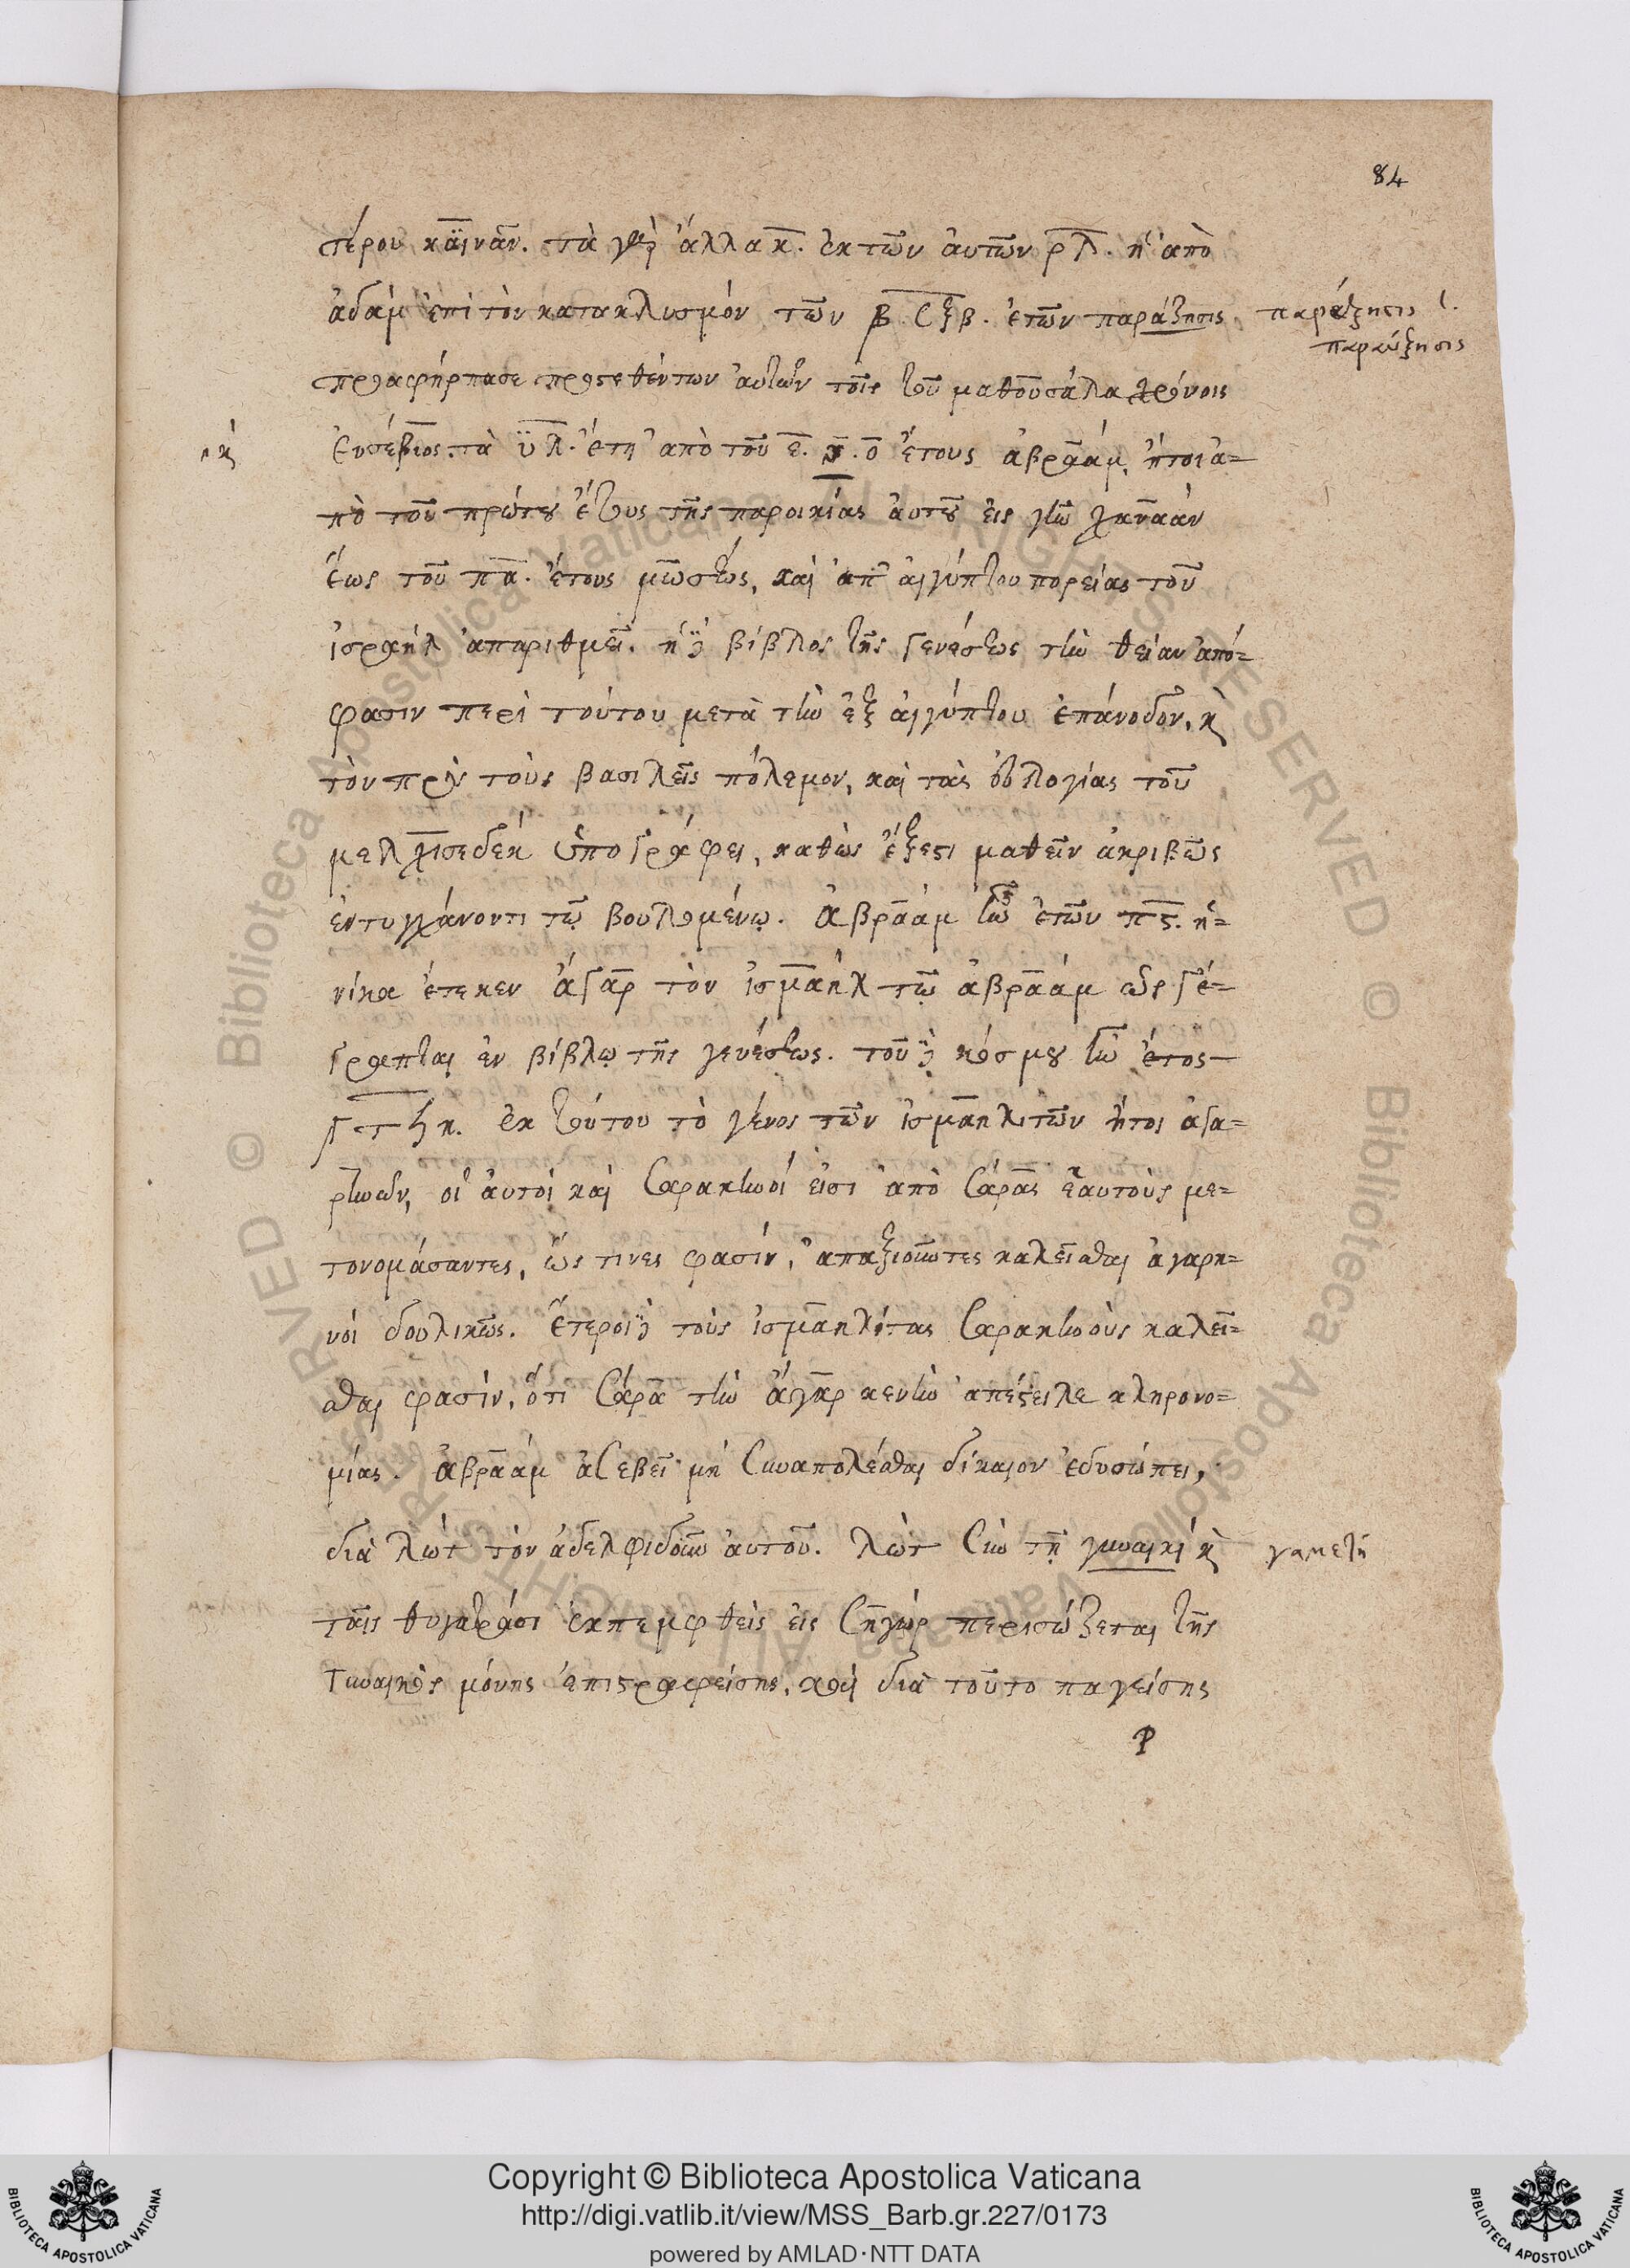 84
τέρου καϊνᾶν. τὰ γὰρ ἄλλα κ̅. ἐκ τῶν αὐτῶν ρ̅λ̅. ἡ ἀπὸ
ἀδὰμ ἐπὶ τὸν κατακλυσμόν τῶν β̅.σ̅ξ̅β̅. ἐτῶν παράξησις παράξησις ἴ.
παραύξησις
προαφήρπασε προστεθέντων αὐτῶν τοῖς τοῦ μαθουσάλα χρόνοις
Εὐσέβιος. τὰ υ̅λ̅. ἔτη ἀπὸ τοῦ ε̅. ο̅ ἔτους ἀβραὰμ, ἤτοι ἀ-
πὸ τοῦ πρώτου ἔτους τῆς παροικίας αὐτοῦ εἰς γῆν χαναὰν
ἕως τοῦ π̅α̅. ἔτους μωσέως, καὶ ἀπ' αἰγύπτου πορείας τοῦ
ἰσραὴλ ἀπαριθμεῖ. ἡ δὲ βίβλος τῆς γενέσεως τὴν θείαν ἀπό-
φασιν περὶ τούτου μετὰ τὴν ἐξ αἰγύπτου ἐπάνοδον, κ
τὸν πρὸς τοὺς βασιλεῖς πόλεμον, καὶ τὰς εὐλογίας τοῦ
μελχισεδὲκ ὑπογράφει, καθὼς ἔξεστι μαθεῖν ἀκριβῶς
ἐντυγχάνοντι τῷ βουλομένῳ. ἀβραὰμ ἦν ἐτῶν π̅ς̅. ἡ-
νίκα ἔτεκεν ἄγαρ τὸν ἰσμαὴλ τῷ ἀβραὰμ ὡς γέ-
γραπται ἐν βίβλῳ τῆς γενέσεως. τοῦ δὲ κόσμου ἦν ἔτος
͵γτϟη. ἐκ τούτου τὸ γένος τῶν ἰσμαηλιτῶν ἤτοι ἀγα-
ρηνῶν, οἱ αὐτοὶ καὶ Σαρακηνοί εἰσι ἀπὸ Σάρας ἑαυτοὺς με-
τονομάσαντες, ὥς τινες φασίν, ἀπαξιοῦντες καλεῖσθαι ἀγαρη-
νοὶ δουλικῶς. Ἕτεροι δὲ τοὺς ἰσμαηλίτας Σαρακηνοὺς καλεῖ-
σθαι φασὶν, ὅτι Σάρα τὴν ἄγαρ κενὴν ἀπέστειλε κληρονο-
μίας. ἀβραὰμ ἀσεβεῖ μὴ συναπολέσθαι δίκαιον ἐδυσώπει,
διὰ λὼτ τὸν ἀδελφιδοῦν αὐτοῦ. λὼτ σὺν τῇ γυναικί κ γαμετή
ταῖς θυγατράσι ἐκπεμφθεὶς εἰς Σηγὼρ περισώζεται τῆς
γυναικὸς μόνης ἐπιστραφείσης, καὶ διὰ τοῦτο παγείσης
Copyright © Biblioteca Apostolica Vaticana
http://digi.vatlib.it/view/MSS_Barb.gr.227/0173
powered by AMLAD·NTT DATA
BIBLIOTECA APOSTOLICA VATICANA
BIBLIOTECA APOSTOLICA VATICANA